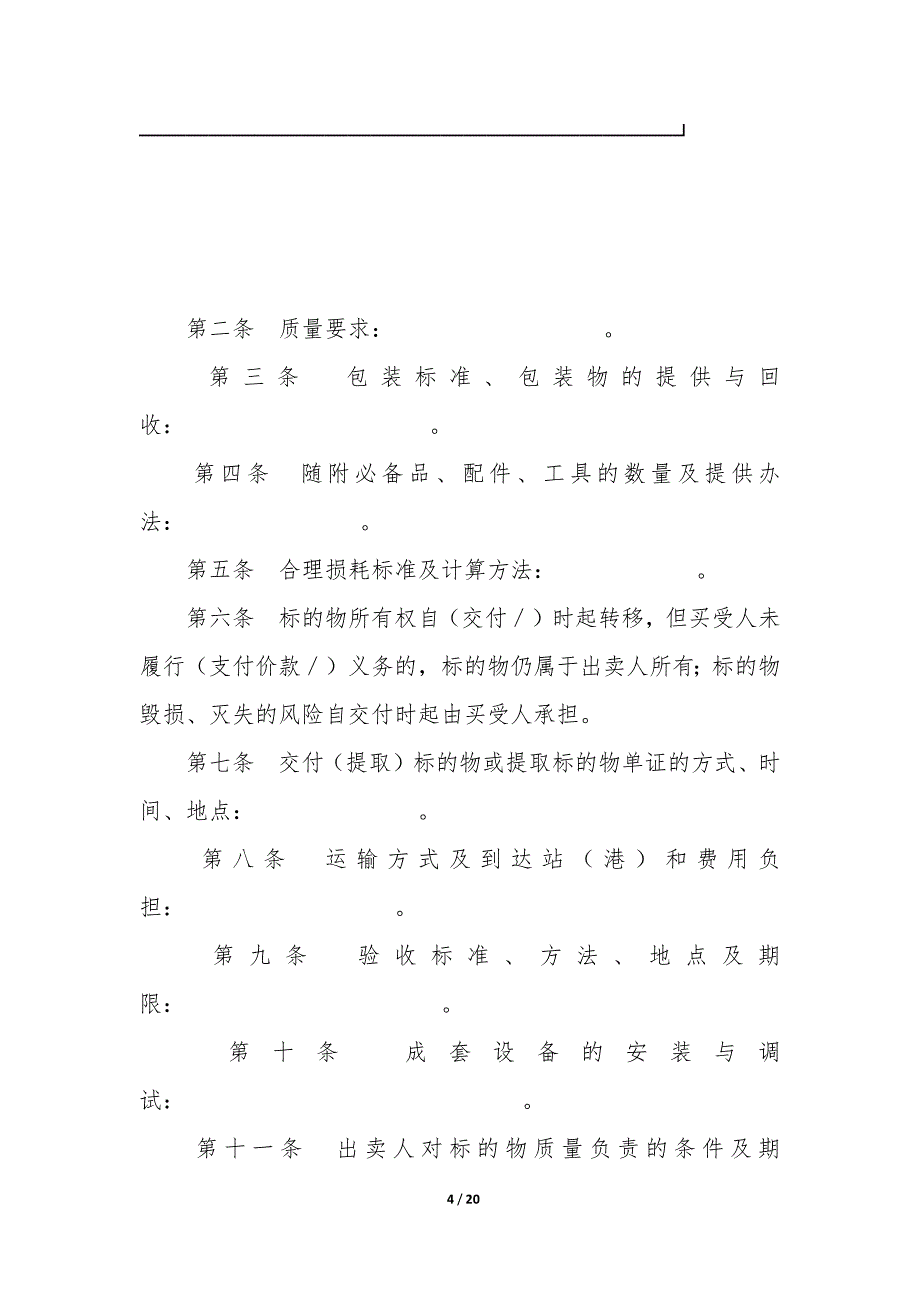 第二条　质量要求：　　　　　　　　　　。
第三条　包装标准、包装物的提供与回
收：　　　　　　　　　　　。
第四条　随附必备品、配件、工具的数量及提供办
法：　　　　　　　　。
第五条　合理损耗标准及计算方法：　　　　　　　。
第六条　标的物所有权自（交付／）时起转移，但买受人未
履行（支付价款／）义务的，标的物仍属于出卖人所有；标的物
毁损、灭失的风险自交付时起由买受人承担。
第七条　交付（提取）标的物或提取标的物单证的方式、时
间、地点：　　　　　　　　。
第八条　运输方式及到达站（港）和费用负
担：　　　　　　　　　　。
第九条　验收标准、方法、地点及期
限：　　　　　　　　　　　　。
第十条　成套设备的安装与调
试：　　　　　　　　　　　　　　　。
第十一条　出卖人对标的物质量负责的条件及期
4 / 20